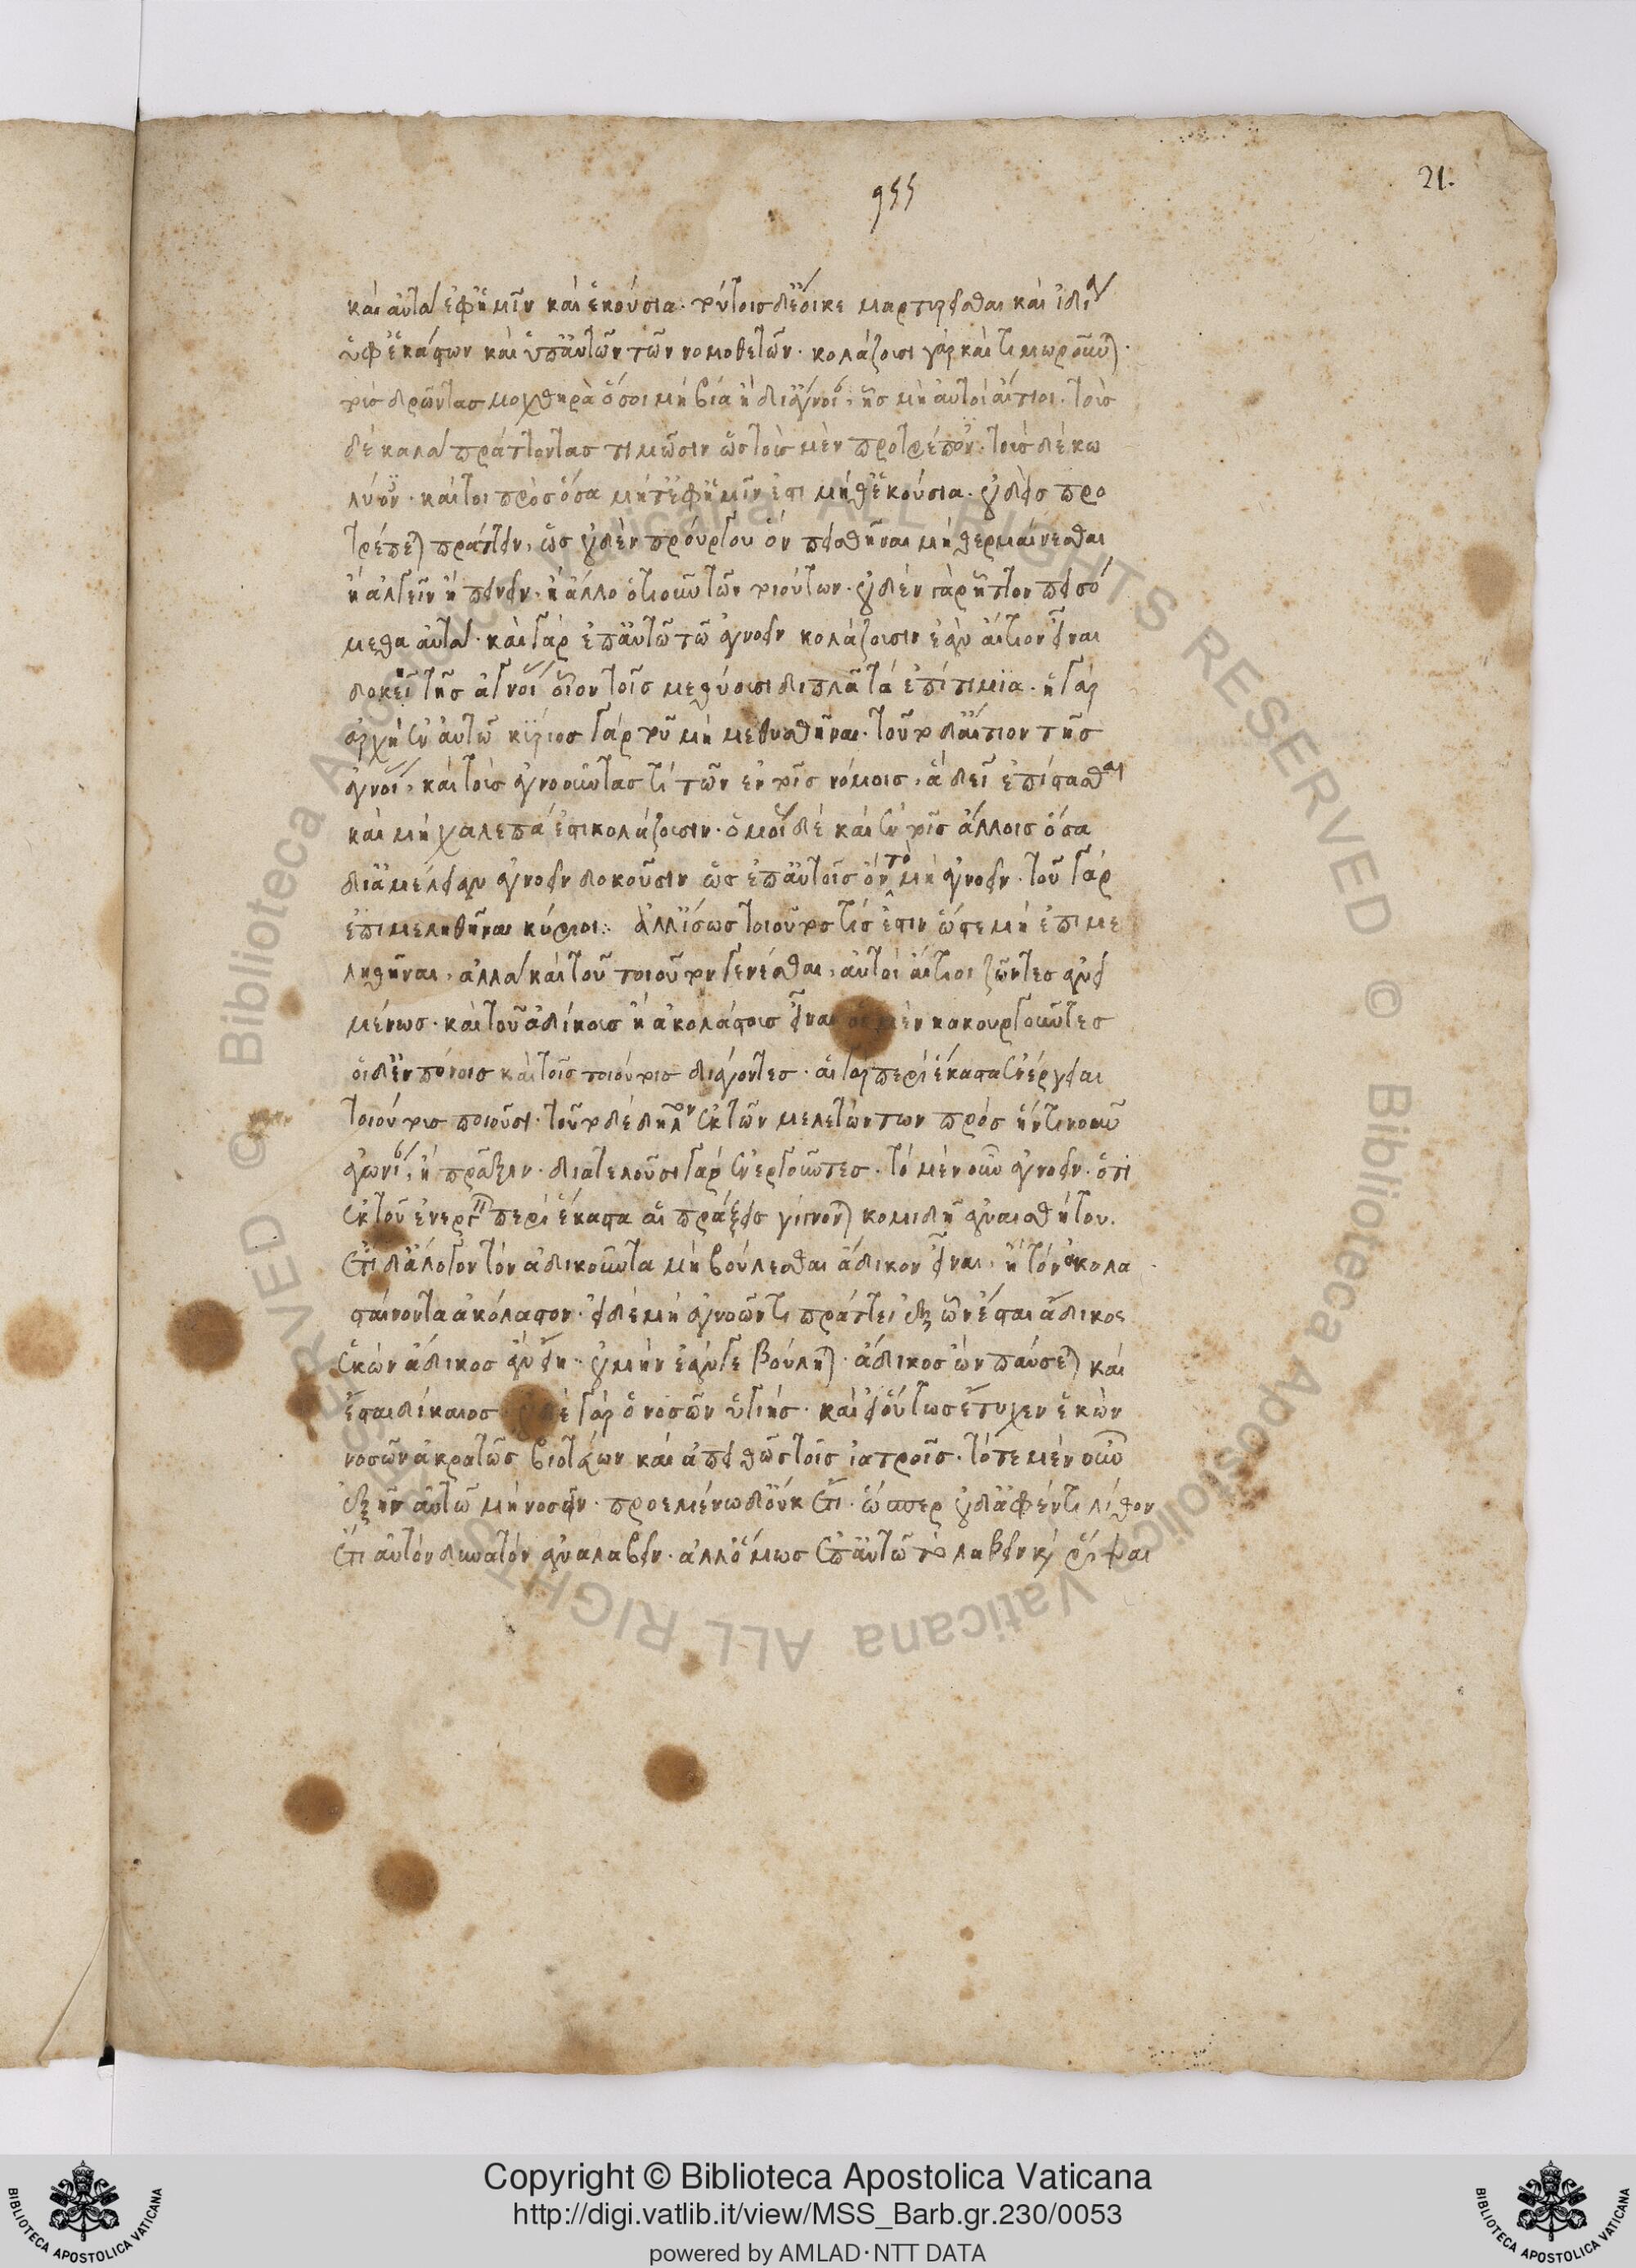 955
21.
καὶ αὐτὰ ἐφ' ἡμῖν καὶ ἑκούσια· τούτοις δ' ἔοικε μαρτυρεῖσθαι καὶ ἰδίᾳ
ὑφ' ἑκάστων καὶ ὑπ' αὐτῶν τῶν νομοθετῶν· κολάζουσι γὰρ καὶ τιμωροῦνται·
τοὺς δρῶντας μοχθηρὰ ὅσοι μὴ βίᾳ ἢ δι' ἄγνοιαν, ἧς μὴ αὐτοὶ αἴτιοι· τοὺς
δὲ καλὰ πράττοντας τιμῶσιν ὡς τοὺς μὲν προτρέποντες· τοὺς δὲ κω
λύοντες· καίτοι πρὸς ὅσα μήτ' ἐφ' ἡμῖν ἐστι μήθ' ἑκούσια· οὐδεὶς προ
τρέπεται πράττειν, ὡς οὐδὲν προύργου ὂν πεισθῆναι μὴ θερμαίνεσθαι
ἢ ἀλγεῖν ἢ πεινεῖν, ἢ ἄλλο ὁτιοῦν τῶν τοιούτων· οὐδὲν γὰρ ἧττον πεισό
μεθα αὐτά· καὶ γὰρ ἐπ' αὐτῷ τῷ ἀγνοεῖν κολάζουσιν ἐὰν αἴτιον εἶναι
δοκεῖ τῆς ἀγνοίας οἷον τοῖς μεθύουσι διπλᾶ τὰ ἐπιτίμια· ἡ γὰρ
ἀρχὴ ἐν αὐτῷ κύριος γὰρ τοῦ μὴ μεθυσθῆναι· τοῦτο δ' αἴτιον τῆς
ἀγνοίας, καὶ τοὺς ἀγνοοῦντάς τι τῶν ἐν τοῖς νόμοις, ἃ δεῖ ἐπίστασθαι
καὶ μὴ χαλεπά ἐστι κολάζουσιν· ὁμοίως δὲ καὶ ἐν τοῖς ἄλλοις ὅσα
δι' ἀμέλειαν ἀγνοεῖν δοκοῦσιν ὡς ἐπ' αὐτοῖς ὂν τὸ μὴ ἀγνοεῖν· τοῦ γὰρ
ἐπιμεληθῆναι κύριοι: ἀλλ' ἴσως τοιοῦτός τίς ἐστιν ὥστε μὴ ἐπιμε
ληθῆναι, ἀλλὰ καὶ τοῦ τοιούτου γενέσθαι, αὐτοὶ αἴτιοι ζῶντες ἀνει
μένως· καὶ τοῦ ἀδίκους ἢ ἀκολάστους εἶναι οἱ μὲν κακουργοῦντες
οἱ δ' ἐν πότοις καὶ τοῖς τοιούτοις διάγοντες· αἱ γὰρ περὶ ἕκαστα ἐνέργειαι
τοιούτους ποιοῦσι· τοῦτο δὲ δῆλον ἐκ τῶν μελετώντων πρὸς ἡντινοῦν
ἀγωνίαν, ἢ πρᾶξιν· διατελοῦσι γὰρ ἐνεργοῦντες· τὸ μὲν οὖν ἀγνοεῖν· ὅτι
ἐκ τοῦ ἐνεργεῖν περὶ ἕκαστα αἱ πράξεις γίνονται κομιδῇ ἀναισθήτου·
ἔτι δ' ἄλογον τὸν ἀδικοῦντα μὴ βούλεσθαι ἄδικον εἶναι, ἢ τὸν ἀκολα
σταίνοντα ἀκόλαστον· εἰ δὲ μὴ ἀγνοῶν τι πράττει ἐξ ὧν ἔσται ἄδικος
ἑκὼν ἄδικος ἂν εἴη· οὐ μὴν ἐάν γε βούληται· ἄδικος ὢν παύσεται καὶ
ἔσται δίκαιος· οὐδὲ γὰρ ὁ νοσῶν ὑγιής· καὶ εἰ οὕτως ἔτυχεν ἑκὼν
νοσῶν ἀκρατῶς βιοτεύων καὶ ἀπειθῶς τοῖς ἰατροῖς· τότε μὲν οὖν
ἐξῆν αὐτῷ μὴ νοσεῖν· προεμένῳ δ' οὐκ ἔτι· ὥσπερ οὐδ' ἀφέντι λίθον
ἔτι αὐτὸν δυνατὸν ἀναλαβεῖν· ἀλλ' ὅμως ἐπ' αὐτῷ τὸ λαβεῖν καὶ ῥίψαι
Copyright © Biblioteca Apostolica Vaticana
http://digi.vatlib.it/view/MSS_Barb.gr.230/0053
powered by AMLAD·NTT DATA